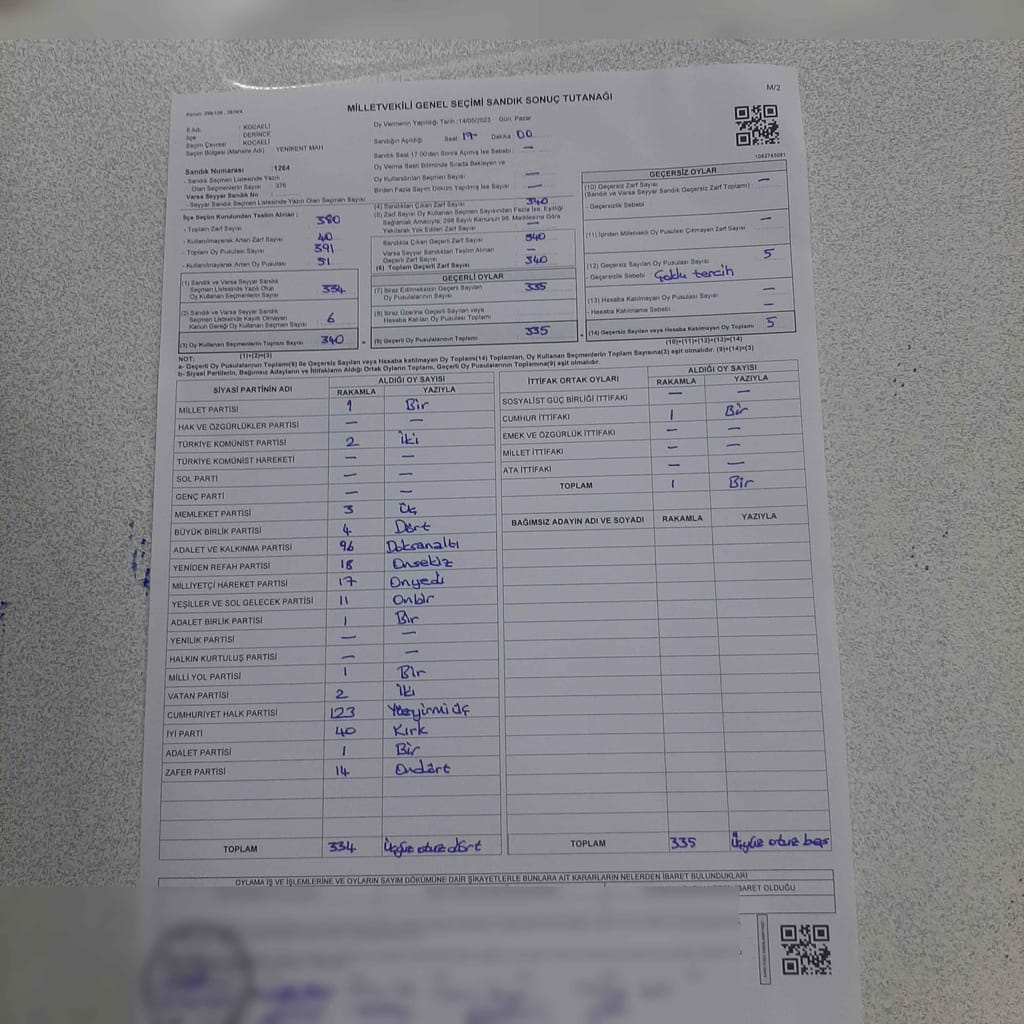 Kanun: 298/105 , 2839/4
MİLLETVEKİLİ GENEL SEÇİMİ SANDIK SONUÇ TUTANAĞI
M/2
İl Adı : KOCAELİ
İlçe : DERİNCE
Seçim Çevresi : KOCAELİ
Seçim Bölgesi (Mahalle Adı) : YENİKENT MAH
Sandık Numarası : 1264
- Sandık Seçmen Listesinde Yazılı
Olan Seçmenlerin Sayısı 379
Varsa Seyyar Sandık No :
- Seyyar Sandık Seçmen Listesinde Yazılı Olan Seçmen Sayısı
Oy Vermenin Yapıldığı Tarih :14/05/2023 Gün: Pazar
Sandığın Açıldığı Saat 17 Dakika 00
Sandık Saat 17.00'den Sonra Açılmış İse Sebebi : —
Oy Verme Saati Bitiminde Sırada Bekleyen ve
Oy Kullandırılan Seçmen Sayısı —
Birden Fazla Sayım Döküm Yapılmış İse Sayısı —
1082743091
İlçe Seçim Kurulundan Teslim Alınan ;
- Toplam Zarf Sayısı 380
- Kullanılmayarak Artan Zarf Sayısı 40
- Toplam Oy Pusulası Sayısı 391
- Kullanılmayarak Artan Oy Pusulası 51
(1) Sandık ve Varsa Seyyar Sandık
Seçmen Listesinde Yazılı Olup
Oy Kullanan Seçmenlerin Sayısı 334
(2) Sandık ve Varsa Seyyar Sandık
Seçmen Listesinde Kayıtlı Olmayan
Kanun Gereği Oy Kullanan Seçmen Sayısı 6
(3) Oy Kullanan Seçmenlerin Toplam Sayısı 340
(1)+(2)=(3)
(4) Sandıktan Çıkan Zarf Sayısı 340
(5) Zarf Sayısı Oy Kullanan Seçmen Sayısından Fazla İse, Eşitliği
Sağlamak Amacıyla, 298 Sayılı Kanunun 98. Maddesine Göre
Yakılarak Yok Edilen Zarf Sayısı —
Sandıkta Çıkan Geçerli Zarf Sayısı 340
Varsa Seyyar Sandıktan Teslim Alınan
Geçerli Zarf Sayısı —
(6) Toplam Geçerli Zarf Sayısı 340
GEÇERLİ OYLAR
(7) İtiraz Edilmeksizin Geçerli Sayılan
Oy Pusulalarının Sayısı 335
(8) İtiraz Üzerine Geçerli Sayılan veya
Hesaba Katılan Oy Pusulası Toplamı
(9) Geçerli Oy Pusulalarının Toplamı 335
GEÇERSİZ OYLAR
(10) Geçersiz Zarf Sayısı —
(Sandık ve Varsa Seyyar Sandık Geçersiz Zarf Toplamı) :
- Geçersizlik Sebebi
(11) İçinden Milletvekili Oy Pusulası Çıkmayan Zarf Sayısı —
(12) Geçersiz Sayılan Oy Pusulası Sayısı 5
- Geçersizlik Sebebi Çoklu tercih
(13) Hesaba Katılmayan Oy Pusulası Sayısı —
- Hesaba Katılmama Sebebi —
(14) Geçersiz Sayılan veya Hesaba Katılmayan Oy Toplamı 5
(10)+(11)+(12)+(13)=(14)
NOT:
a- Geçerli Oy Pusulalarının Toplamı(9) ile Geçersiz Sayılan veya Hesaba katılmayan Oy Toplam(14) Toplamları, Oy Kullanan Seçmenlerin Toplam Sayısına(3) eşit olmalıdır. (9)+(14)=(3)
b- Siyasi Partilerin, Bağımsız Adayların ve İttifakların Aldığı Ortak Oyların Toplamı, Geçerli Oy Pusulalarının Toplamına(9) eşit olmalıdır.
SİYASİ PARTİNİN ADI ALDIĞI OY SAYISI
RAKAMLA YAZIYLA
MİLLET PARTİSİ 1 Bir
HAK VE ÖZGÜRLÜKLER PARTİSİ — —
TÜRKİYE KOMÜNİST PARTİSİ 2 İki
TÜRKİYE KOMÜNİST HAREKETİ — —
SOL PARTİ — —
GENÇ PARTİ — —
MEMLEKET PARTİSİ 3 Üç
BÜYÜK BİRLİK PARTİSİ 4 Dört
ADALET VE KALKINMA PARTİSİ 96 Doksanaltı
YENİDEN REFAH PARTİSİ 18 Onsekiz
MİLLİYETÇİ HAREKET PARTİSİ 17 Onyedi
YEŞİLLER VE SOL GELECEK PARTİSİ 11 Onbir
ADALET BİRLİK PARTİSİ 1 Bir
YENİLİK PARTİSİ — —
HALKIN KURTULUŞ PARTİSİ — —
MİLLİ YOL PARTİSİ 1 Bir
VATAN PARTİSİ 2 İki
CUMHURİYET HALK PARTİSİ 123 Yüzyirmi üç
İYİ PARTİ 40 Kırk
ADALET PARTİSİ 1 Bir
ZAFER PARTİSİ 14 Ondört
TOPLAM 334 Üçyüz otuz dört
İTTİFAK ORTAK OYLARI ALDIĞI OY SAYISI
RAKAMLA YAZIYLA
SOSYALİST GÜÇ BİRLİĞİ İTTİFAKI — —
CUMHUR İTTİFAKI 1 Bir
EMEK VE ÖZGÜRLÜK İTTİFAKI — —
MİLLET İTTİFAKI — —
ATA İTTİFAKI — —
TOPLAM 1 Bir
BAĞIMSIZ ADAYIN ADI VE SOYADI RAKAMLA YAZIYLA
TOPLAM 335 Üçyüz otuz beş
OYLAMA İŞ VE İŞLEMLERİNE VE OYLARIN SAYIM DÖKÜMÜNE DAİR ŞİKAYETLERLE BUNLARA AİT KARARLARIN NELERDEN İBARET BULUNDUKLARI
BARET OLDUĞU